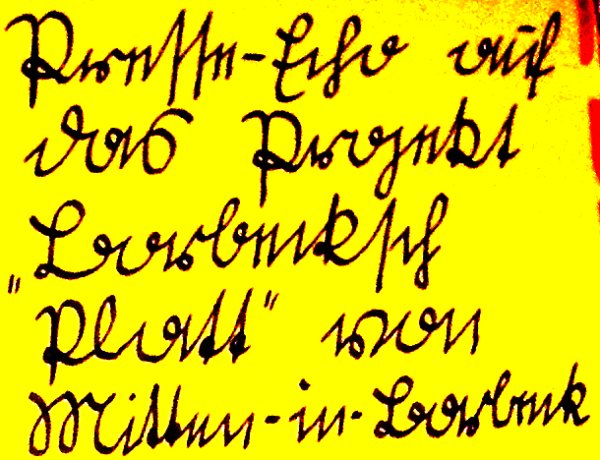 Presse-Echo auf
das Projekt
„Borbecksch
Platt“ von
Mitten-in-Borbeck